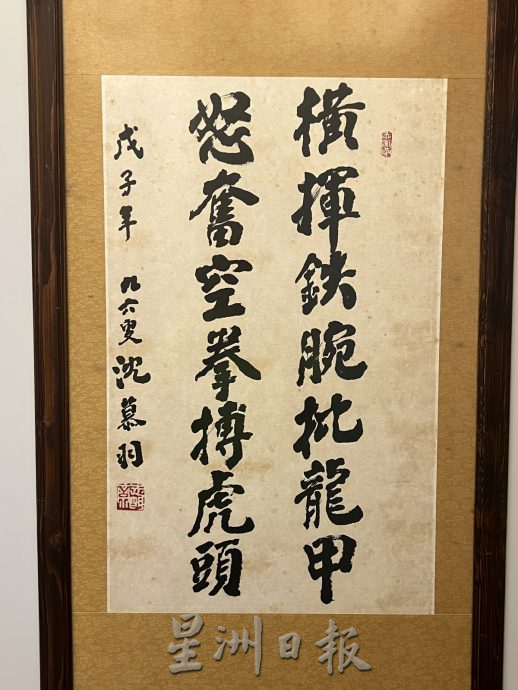 橫揮鉄腕批龍甲
怒奮空拳搏虎頭
戊子年 九六叟 沈慕羽
星洲日報